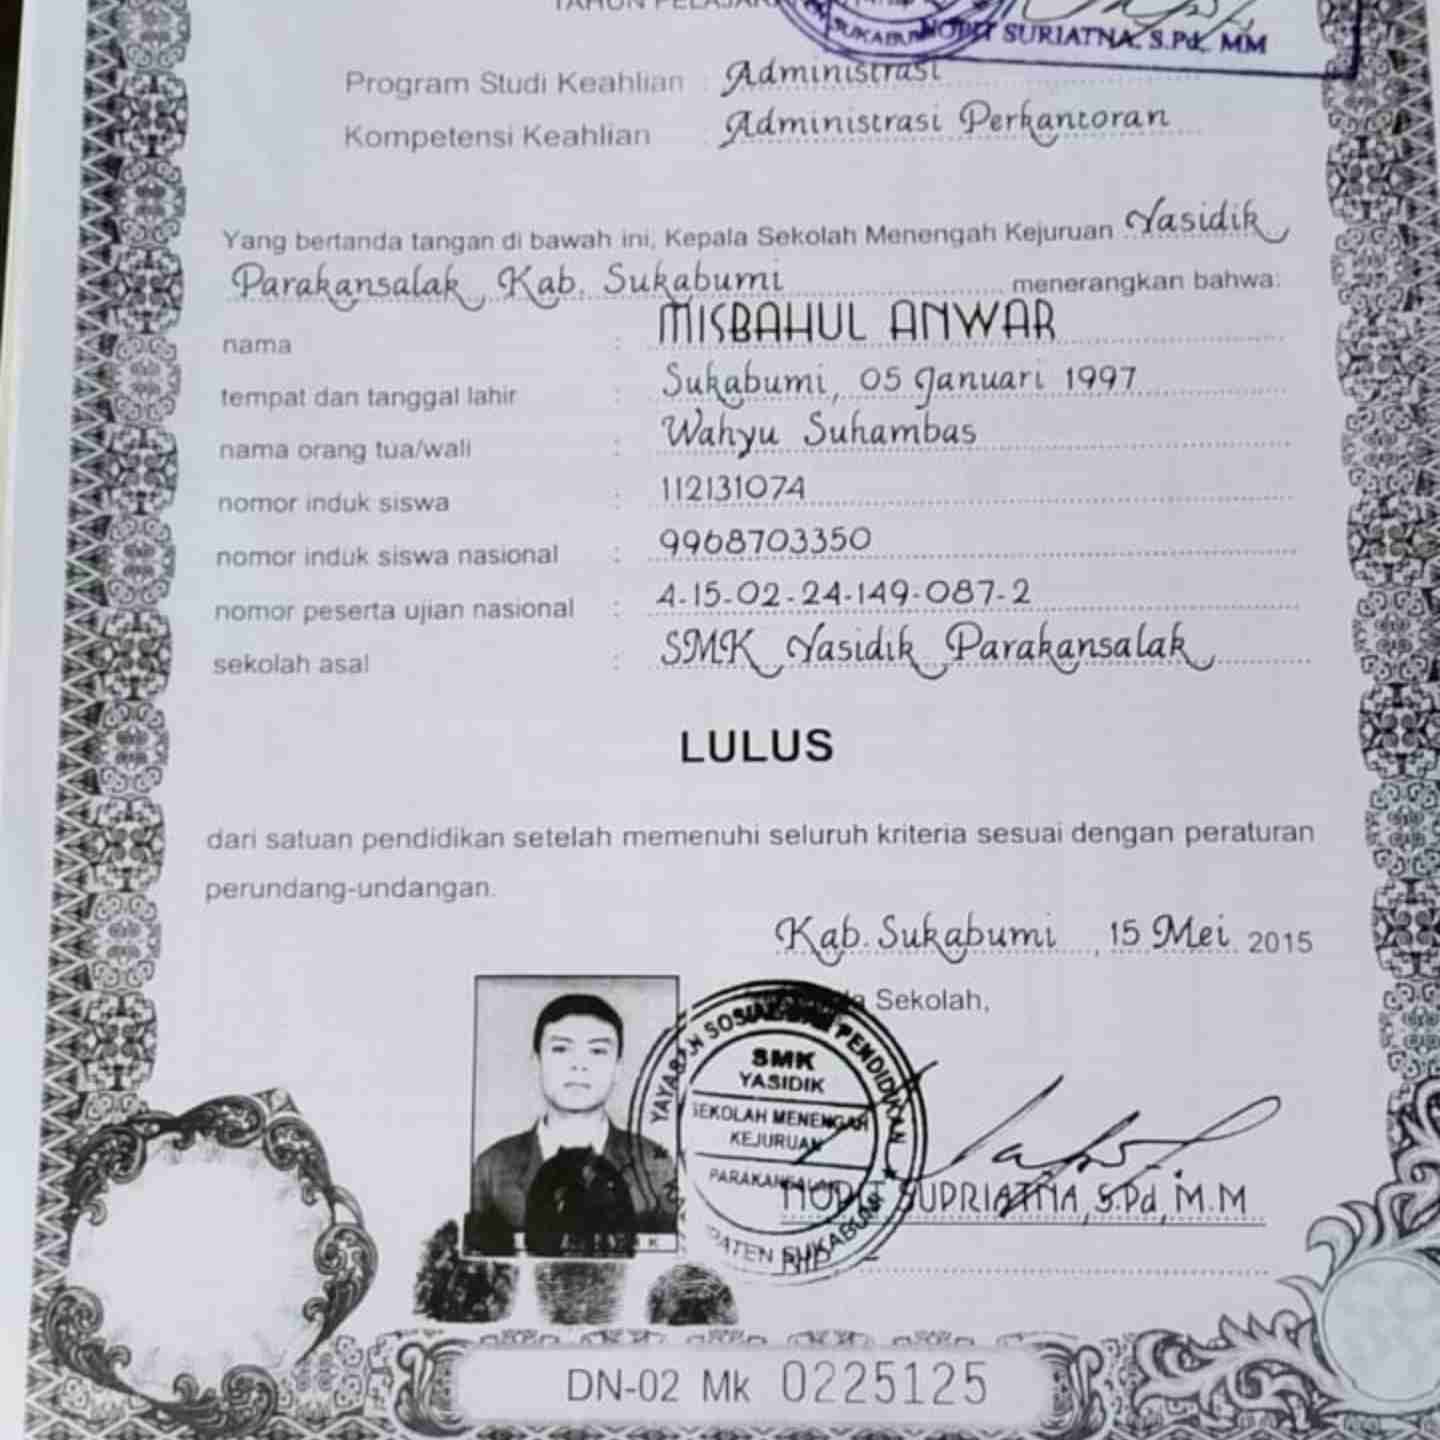 TAHUN PELAJARAN
SUKABUMI
NOPIT SURIATNA, S.Pd, MM
Program Studi Keahlian : Administrasi
Kompetensi Keahlian : Administrasi Perkantoran
Yang bertanda tangan di bawah ini, Kepala Sekolah Menengah Kejuruan Yasidik
Parakansalak Kab. Sukabumi menerangkan bahwa:
nama : MISBAHUL ANWAR
tempat dan tanggal lahir : Sukabumi, 05 Januari 1997
nama orang tua/wali : Wahyu Suhambas
nomor induk siswa : 112131074
nomor induk siswa nasional : 9968703350
nomor peserta ujian nasional : 4-15-02-24-149-087-2
sekolah asal : SMK Yasidik Parakansalak
LULUS
dari satuan pendidikan setelah memenuhi seluruh kriteria sesuai dengan peraturan
perundang-undangan.
Kab. Sukabumi, 15 Mei 2015
Sekolah,
YAYASAN SOSIAL DAN PENDIDIKAN
SMK
YASIDIK
SEKOLAH MENENGAH
KEJURUAN
PARAKANSALAK
SUKABUMI
NOPIT SUPRIATNA, S.Pd, M.M
NIP
DN-02 Mk 0225125